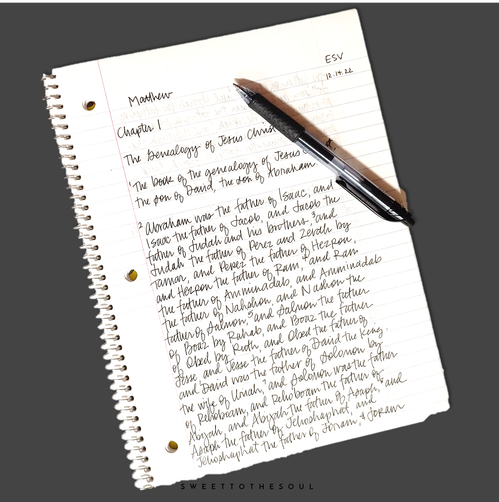 ESV
12.14.22
Matthew
Chapter 1
The Genealogy of Jesus Christ
1 The book of the genealogy of Jesus
the son of David, the son of Abraham.
2 Abraham was the father of Isaac, and
Isaac the father of Jacob, and Jacob the
father of Judah and his brothers, 3 and
Judah the father of Perez and Zerah by
Tamar, and Perez the father of Hezron,
and Hezron the father of Ram, 4 and Ram
the father of Amminadab, and Amminadab
the father of Nahshon, and Nahshon the
father of Salmon, 5 and Salmon the father
of Boaz by Rahab, and Boaz the father
of Obed by Ruth, and Obed the father of
Jesse, 6 and Jesse the father of David the King.
and David was the father of Solomon by
the wife of Uriah, 7 and Solomon was the father
of Rehoboam, and Rehoboam the father of
Abijah, and Abijah the father of Asaph, 8 and
Asaph the father of Jehoshaphat, and
Jehoshaphat the father of Joram, & Joram
SWEETTOTHESOUL